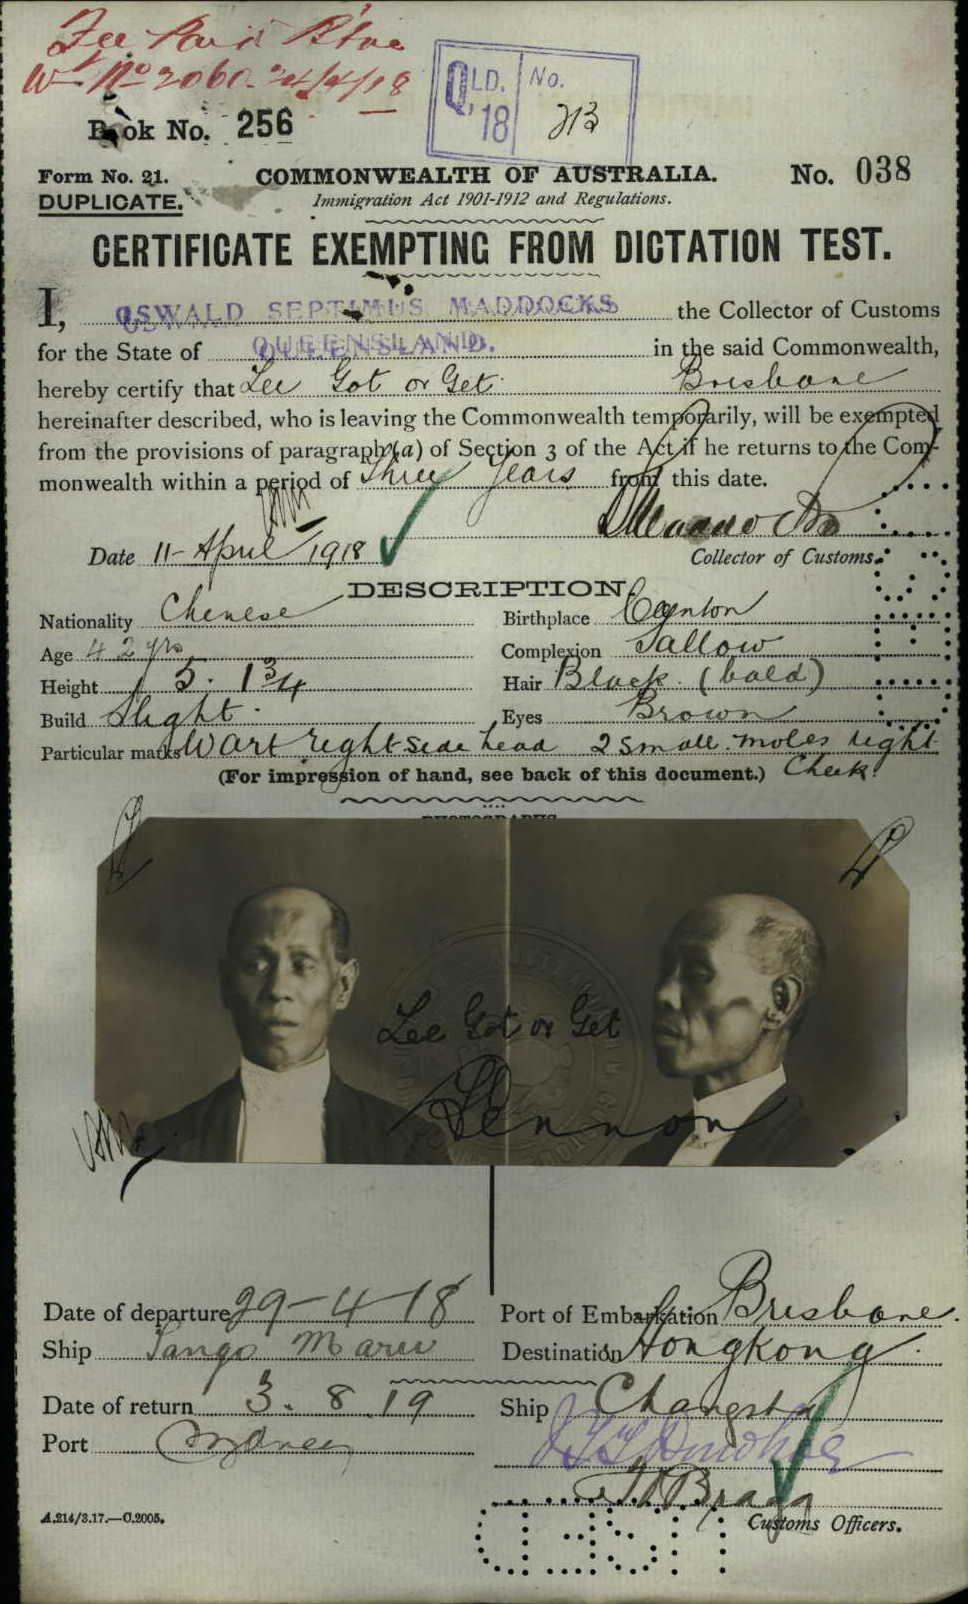 Fee Paid B'bne
No 2060. 24/4/18
QLD. No.
18 213
Book No. 256
Form No. 21. COMMONWEALTH OF AUSTRALIA. No. 038
DUPLICATE. Immigration Act 1901-1912 and Regulations.
CERTIFICATE EXEMPTING FROM DICTATION TEST.
I, OSWALD SEPTIMUS MADDOCKS the Collector of Customs
for the State of QUEENSLAND. in the said Commonwealth,
hereby certify that Lee Got or Get. Brisbane
hereinafter described, who is leaving the Commonwealth temporarily, will be exempted
from the provisions of paragraph (a) of Section 3 of the Act if he returns to the Com-
monwealth within a period of three years from this date.
Date 11 - April 1918 Collector of Customs.
DESCRIPTION.
Nationality Chinese Birthplace Canton
Age 42 yrs Complexion Sallow
Height 5. 1¾ Hair Black (bald)
Build Slight. Eyes Brown
Particular marks Wart right side head 2 small moles right
(For impression of hand, see back of this document.) Cheek.
PHOTOGRAPHS
Lee Got or Get
Date of departure 29-4-18 Port of Embarkation Brisbane.
Ship Tango Maru Destination Hongkong.
Date of return 3. 8. 19 Ship Changsha
Port Sydney
Customs Officers.
A.214/3.17.—C.2005.